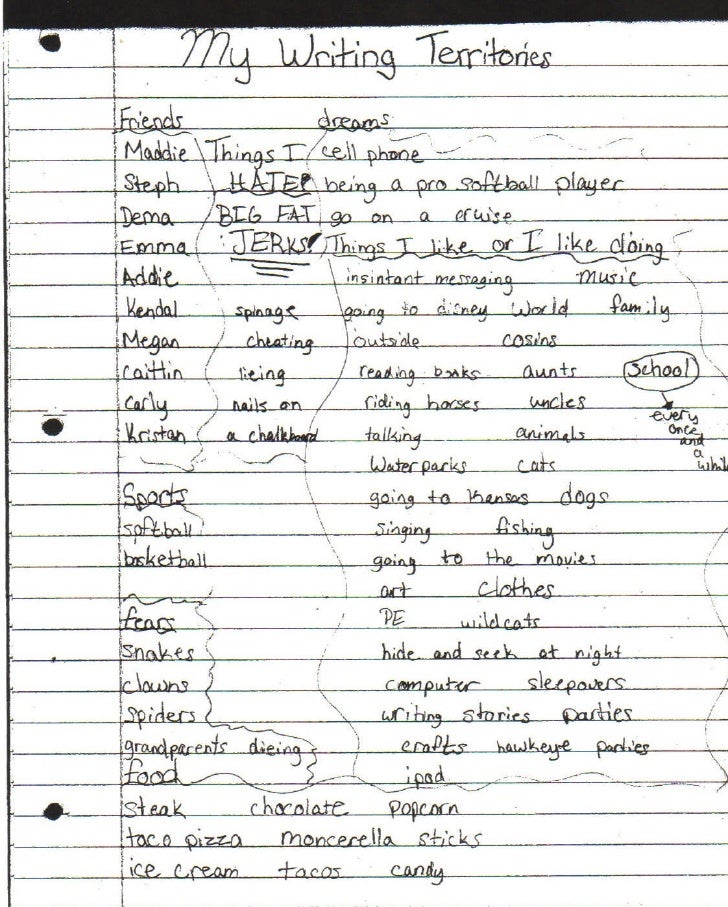 My Writing Territories
Friends
Maddie
Steph
Dema
Emma
Addie
Kendal
Megan
Caitlin
Carly
Kristan
Things I
HATE!
BIG FAT
JERKS!
spinage
cheating
lieing
nails on
a chalkboard
dreams
cell phone
being a pro softball player
go on a cruise
Things I like or I like doing
insintant messaging music
going to disney world family
outside cosins
reading books aunts
riding horses uncles
talking animals
Waterparks cats
going to Kansas dogs
singing fishing
going to the movies
art clothes
PE wildcats
hide and seek at night
computer sleepovers
writing stories parties
crafts hawkeye parties
ipod
School
every
once
and
a
whil
Sports
softball
basketball
fears
snakes
clowns
spiders
grandparents dieing
food
steak chocolate popcorn
taco pizza moncerella sticks
ice cream tacos candy